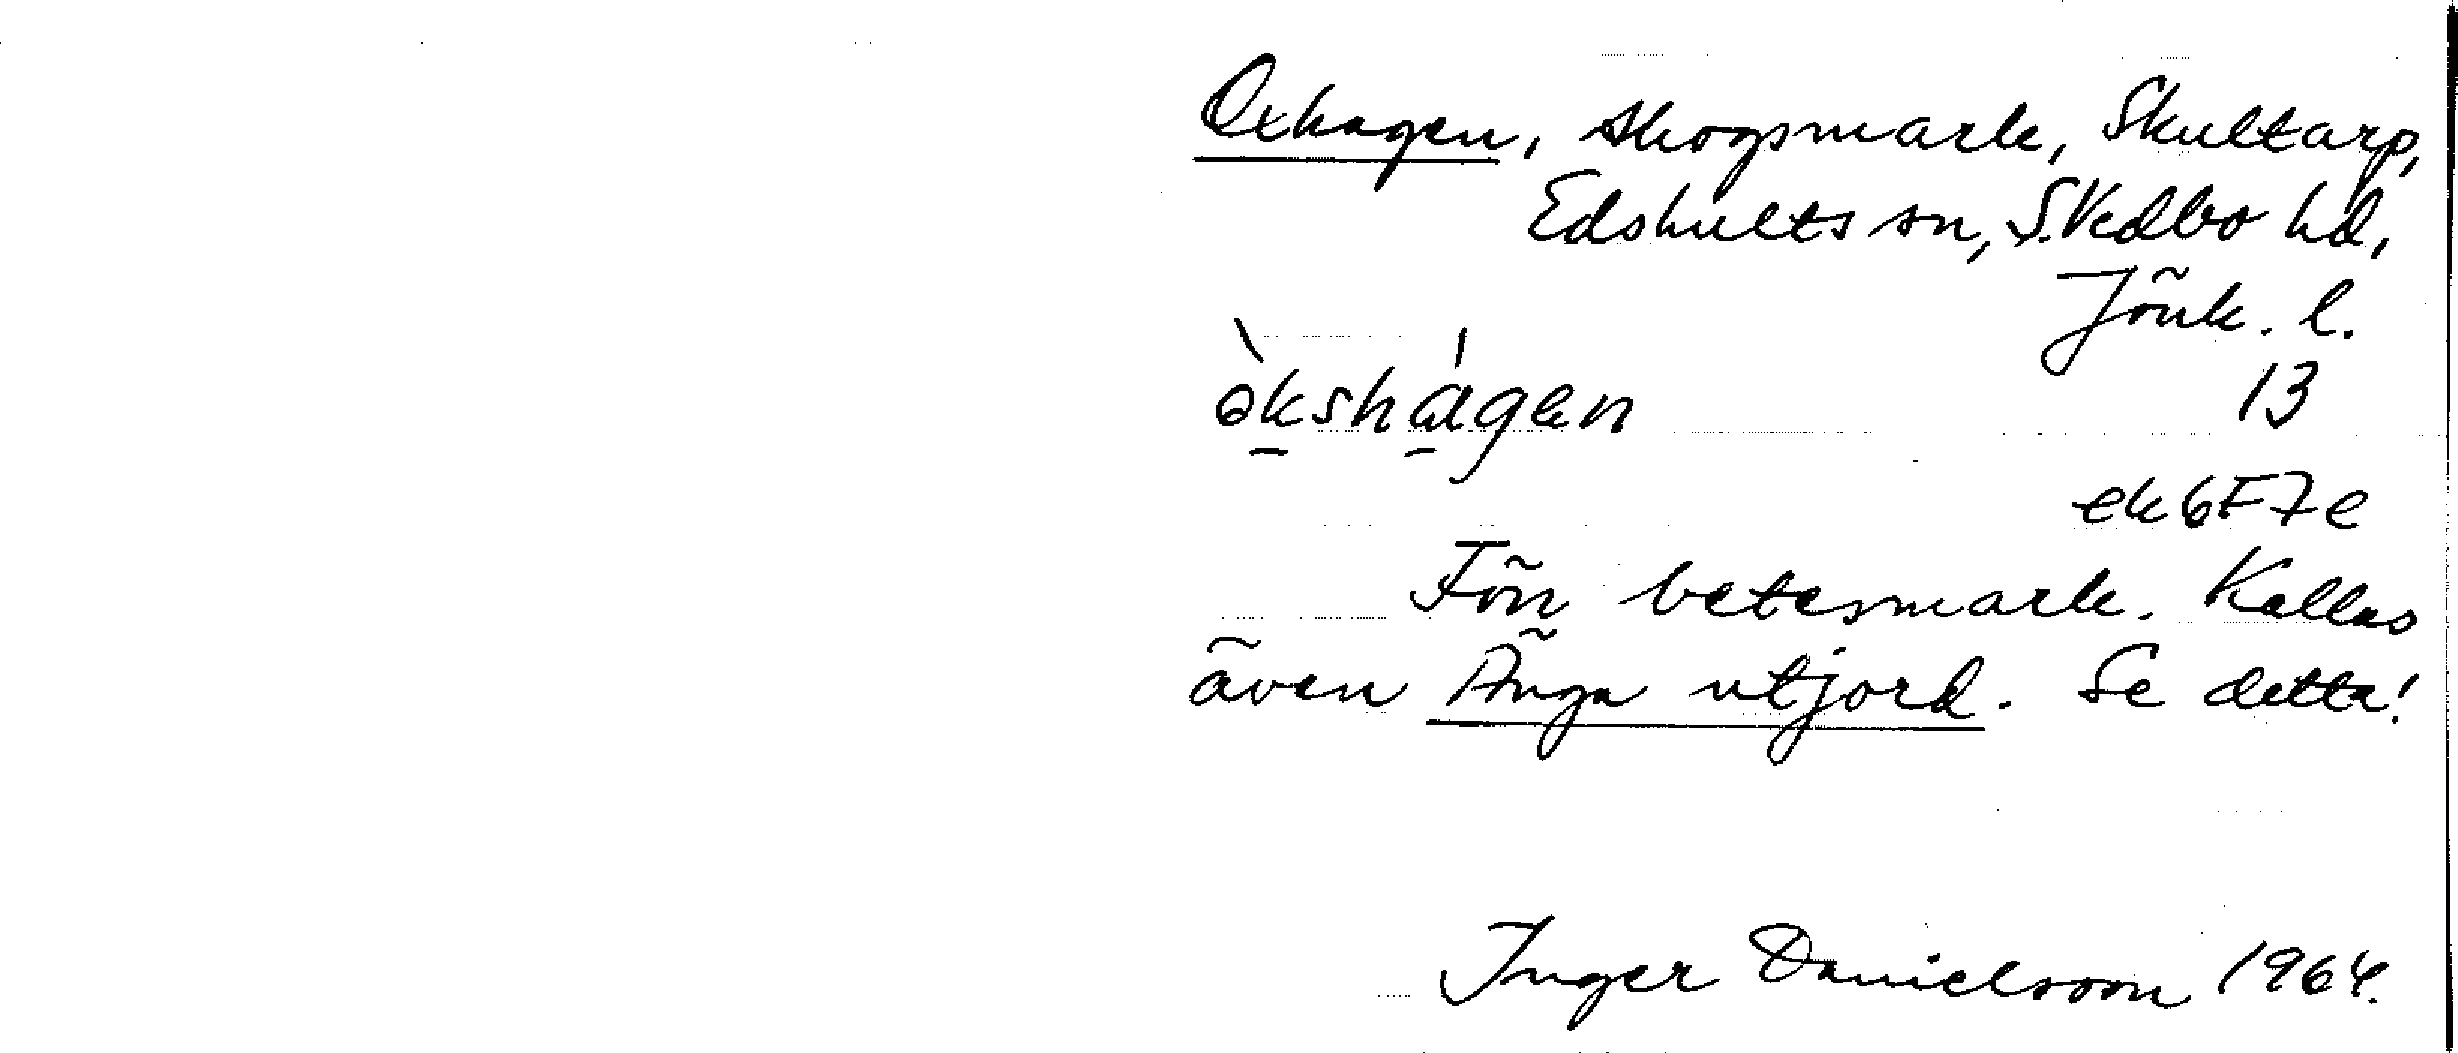 Oxhagen, skogsmark, Skultarp,
Edshults sn, S. Vedbo hd,
Jönk. l.
òkshágen
13
ek 6F7e
Förr betesmark. Kallas
även Änga utjord. Se detta!
Inger Danielsson 1964.